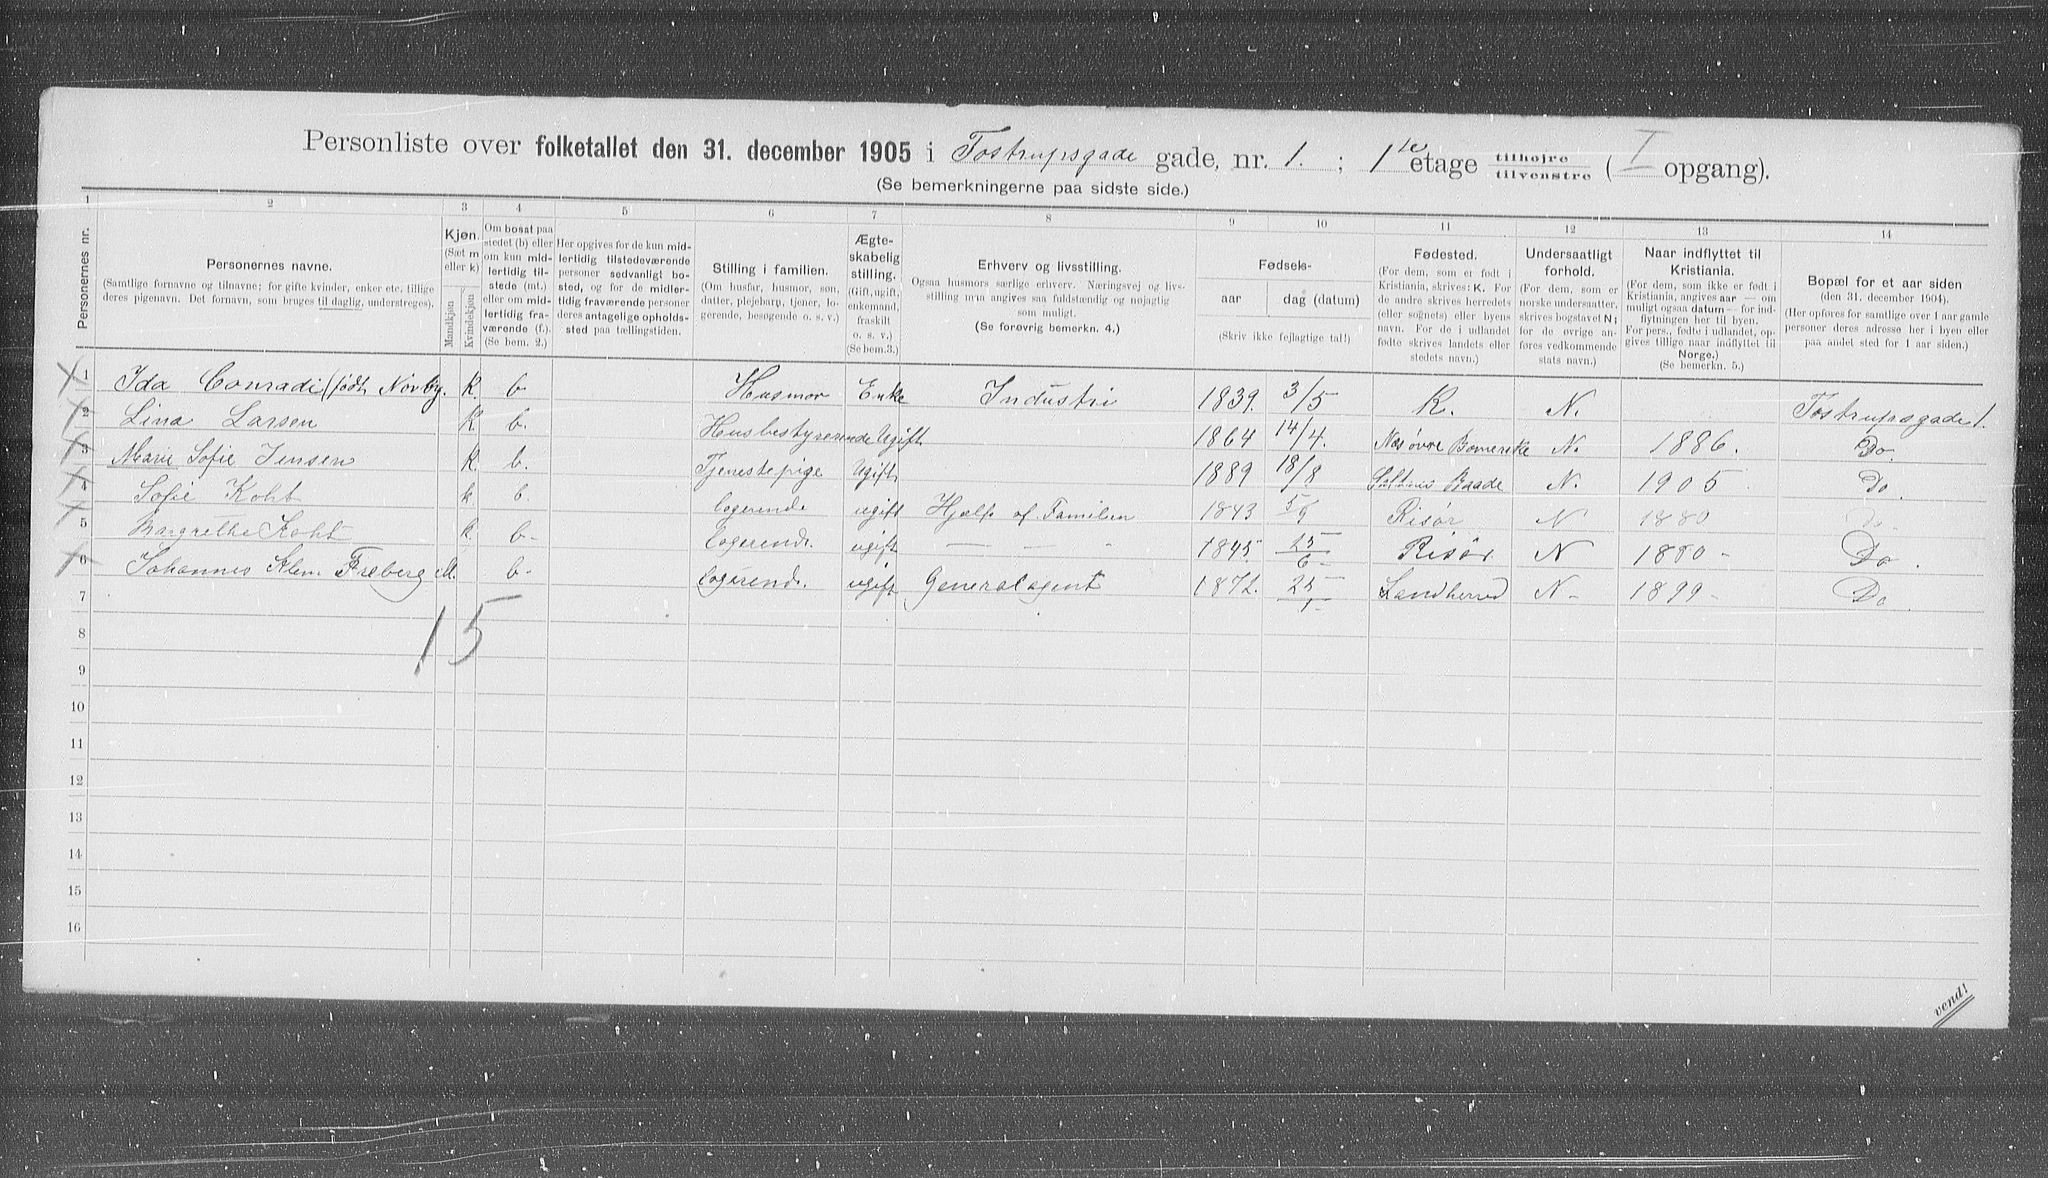 Personliste over folketallet den 31. december 1905 i Tostrupsgade gade, nr. 1. ; 1ste etage tilhøjre tilvenstre ( I opgang).
(Se bemerkningerne paa sidste side.)
1 2 3 4 5 6 7 8 9 10 11 12 13 14
Personernes nr.
Personernes navne.
(Samtlige fornavne og tilnavne; for gifte kvinder, enker etc. tillige deres pigenavn. Det fornavn, som bruges til daglig, understreges).
Kjøn.
(Sæt m eller k)
Mandkjøn
Kvindekjøn
Om bosat paa stedet (b) eller om kun midlertidig tilstede (mt.) eller om midlertidig fraværende (f.). (Se bem. 2.)
Her opgives for de kun midlertidig tilstedeværende personer sedvanligt bosted, og for de midlertidig fraværende personer deres antagelige opholdssted paa tællingstiden.
Stilling i familien.
(Om husfar, husmor, søn, datter, plejebarn, tjener, logerende, besøgende o. s. v.)
Ægteskabelig stilling.
(Gift, ugift, enkemand, fraskilt o. s. v.)
(Se bem.3.)
Erhverv og livsstilling.
Ogsaa husmors særlige erhverv. Næringsvej og livsstilling maa angives saa fuldstændig og nøjagtig som muligt.
(Se forøvrig bemerkn. 4.)
Fødsels-
aar
dag (datum)
(Skriv ikke fejlagtige tal!)
Fødested.
(For dem, som er født i Kristiania, skrives: K. For de andre skrives herredets (eller sognets) eller byens navn. For de i udlandet fødte skrives landets eller stedets navn.)
Undersaatligt forhold.
(For dem, som er norske undersaatter, skrives bogstavet N; for de øvrige anføres vedkommende stats navn.)
Naar indflyttet til Kristiania.
(For dem, som ikke er født i Kristiania, angives aar — om muligt ogsaa datum — for indflytningen her til byen. For pers., fødte i udlandet, opgives tillige naar indflyttet til Norge.)
(Se bemerkn. 5.)
Bopæl for et aar siden
(den 31. december 1904).
(Her opføres for samtlige over 1 aar gamle personer deres adresse her i byen eller paa andet sted for 1 aar siden.)
1 Ida Conradi (født Norby. K b. Husmor Enke Industri 1839. 3/5 K. N. Tostrupsgade 1.
2 Lina Larsen K. b. Husbestyrerende Ugift 1864 14/4. N. 1886. Do.
3 Marie Sofie Jensen K. b. Tjenestepige Ugift 1889 18/8 N. 1905 Do
4 Sofie Koht k b. logerende ugift Hjælp af Familien 1843 5/9 Risør N 1880 Do.
5 Margrethe Koht k. b. logerende. ugift — — " 1845. 25/6 Risör N 1880 Do.
6 Johannes Klem Freberg M. b. logerende. ugift Generalagent 1872. N 1899 Do.
7
8
15
9
10
11
12
13
14
15
16
vend!